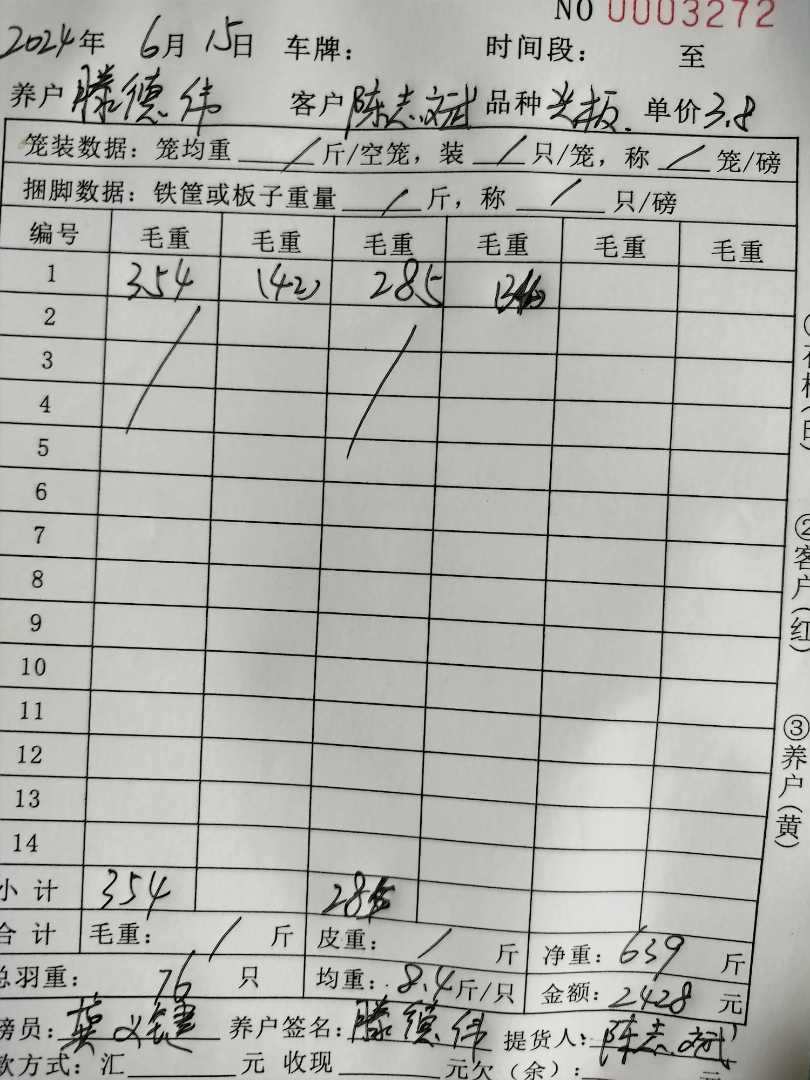 NO 0003272
2024年 6月 15日 车牌: 时间段: 至
养户 滕德伟 客户 陈志斌 品种 光板. 单价3.8
笼装数据: 笼均重 / 斤/空笼, 装 / 只/笼, 称 / 笼/磅
捆脚数据: 铁筐或板子重量 / 斤, 称 / 只/磅
编号 毛重 毛重 毛重 毛重 毛重 毛重
1 354 (42) 285
2
3
4
5
6
7
8
9
10
11
12
13
14
小计 354 285
合计 毛重: / 斤 皮重: / 斤 净重: 639 斤
总羽重: 76 只 均重: 8.4斤/只 金额: 2428 元
磅员: 龚 养户签名: 滕德伟 提货人: 陈志斌
款方式: 汇 元 收现 元欠(余): 元
②客户(红)
③养户(黄)